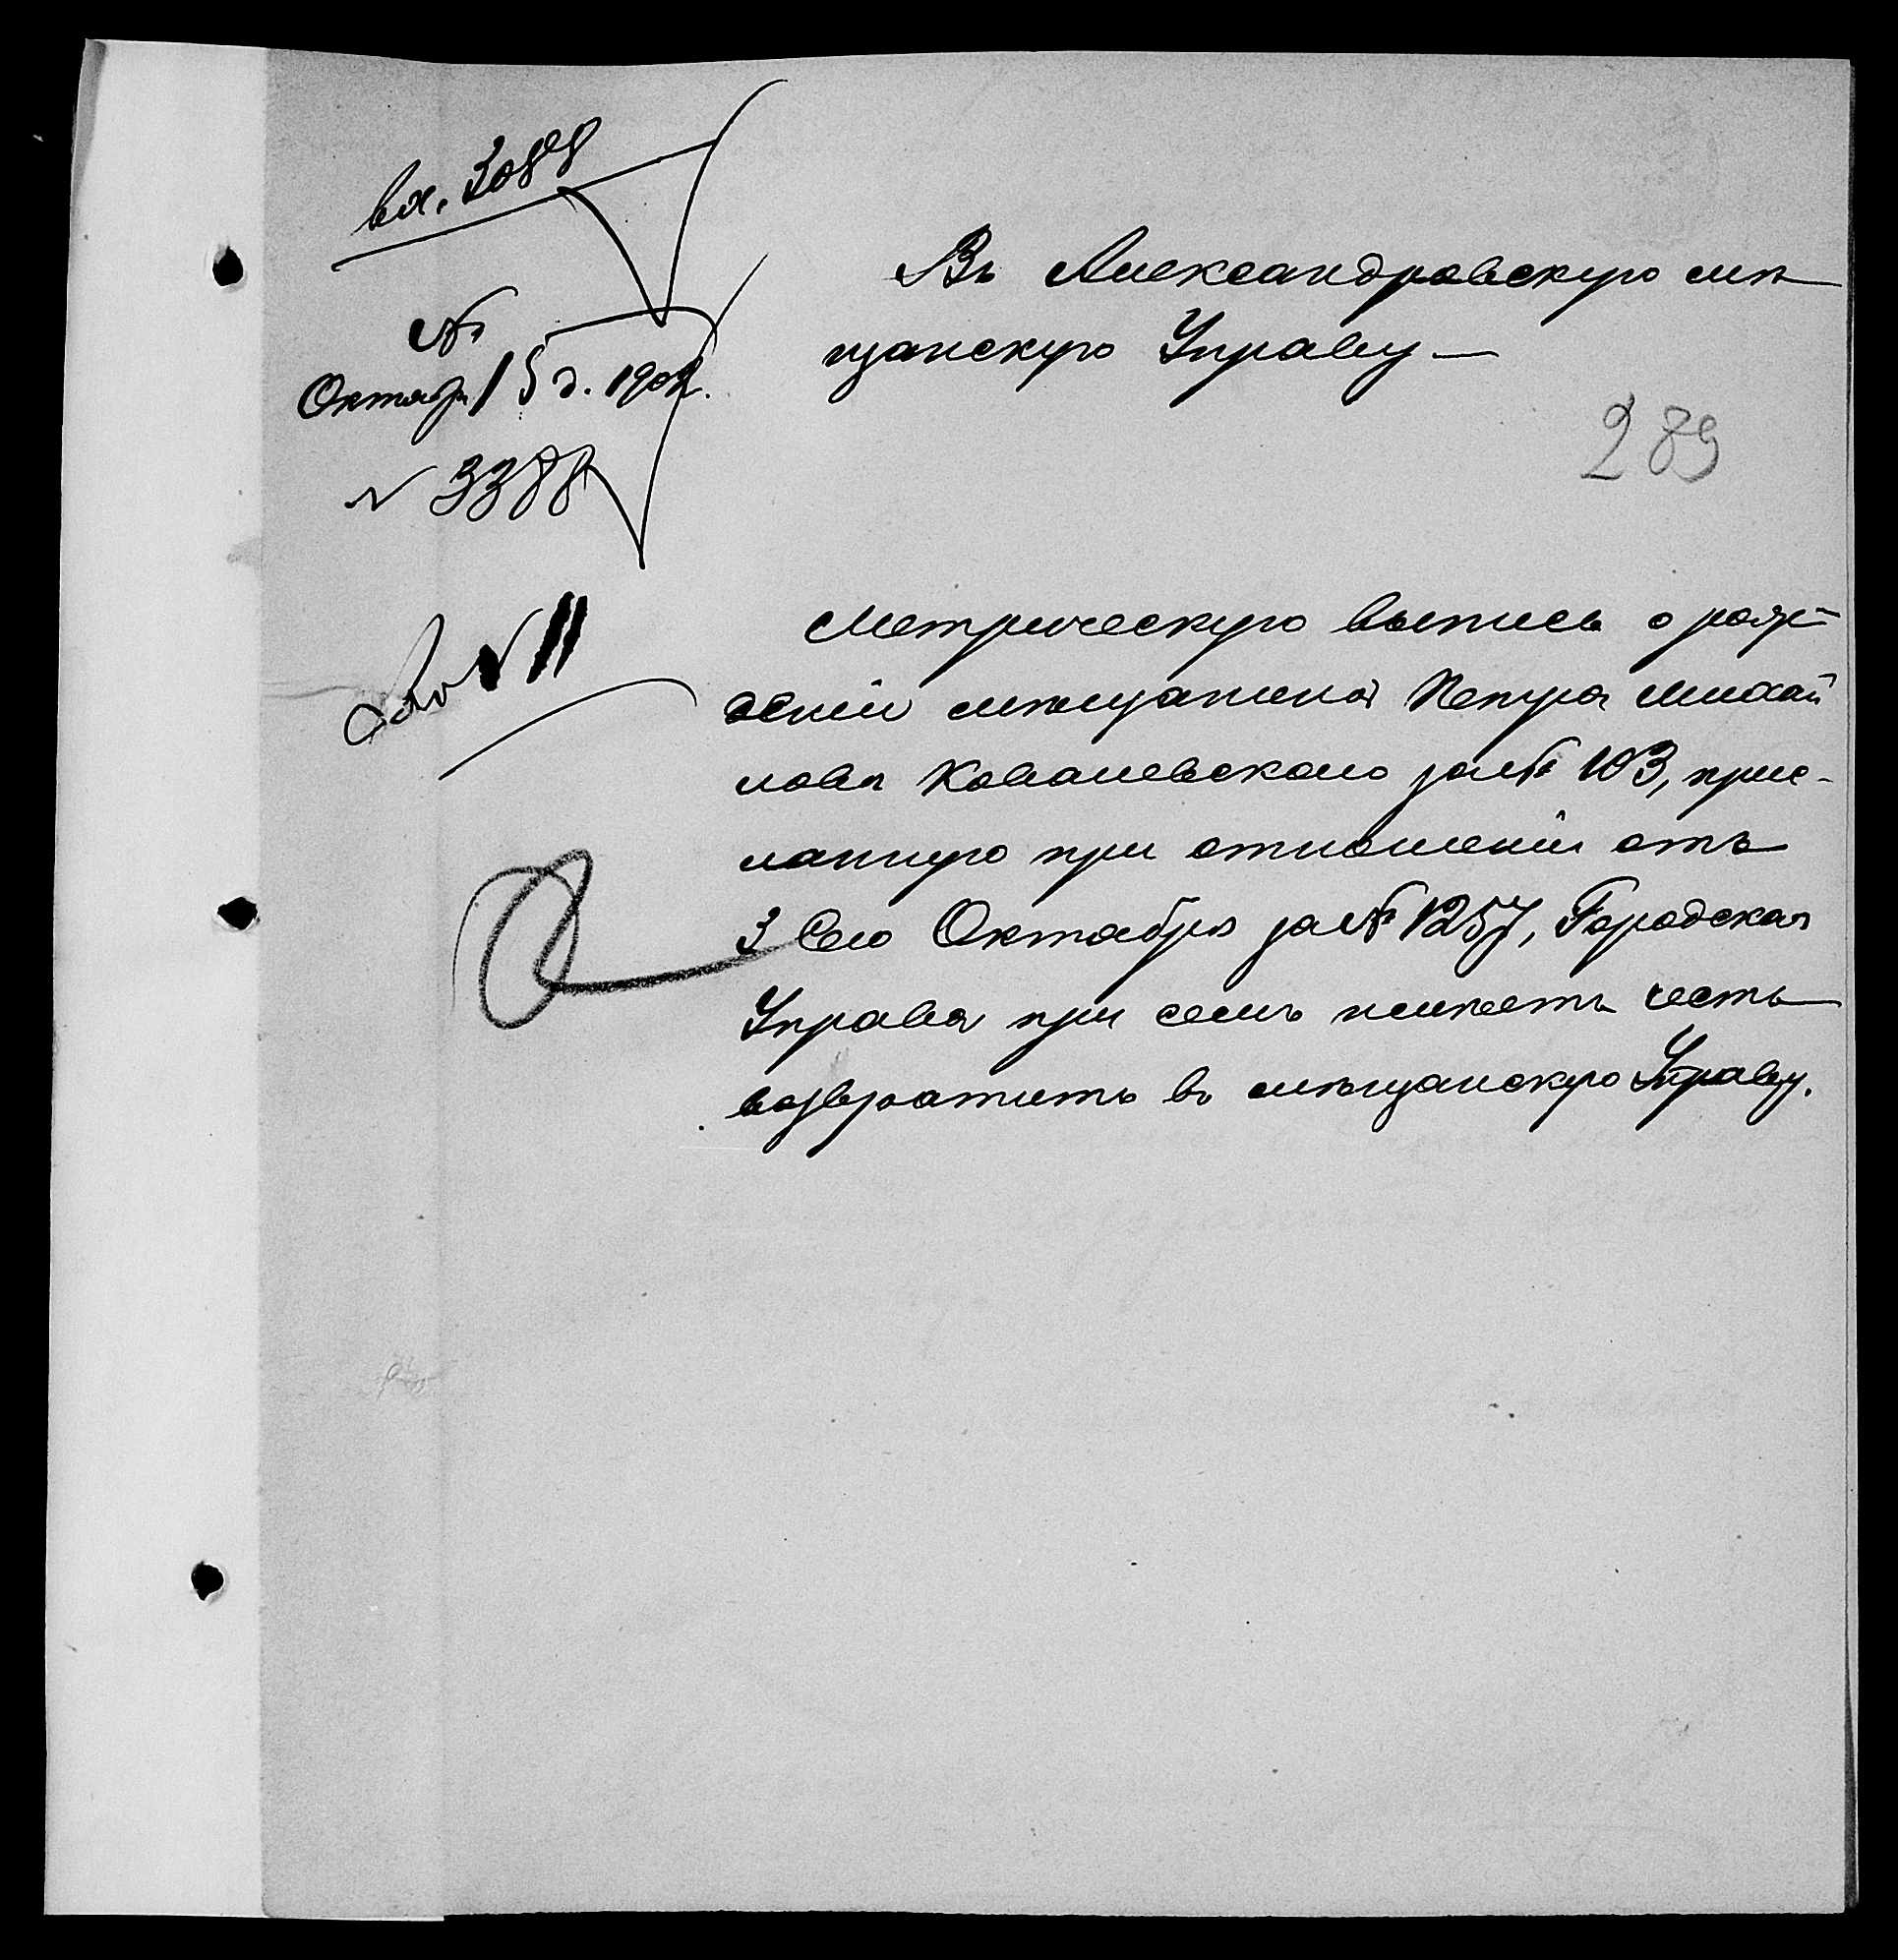 вх. 3088
№
Октября 15 д. 1902.
№ 3388
Въ Александровскую мѣ
щанскую Управу —
289
№ 11
Метрическую выпись о рож-
деніи мѣщанина Петра Михай
лова Ковалевскаго за № 103, прис-
ланную при отношеніи отъ
3 сего Октября за № 1257, Городская
Управа при семъ имѣетъ честь
возвратить въ мѣщанскую Управу.